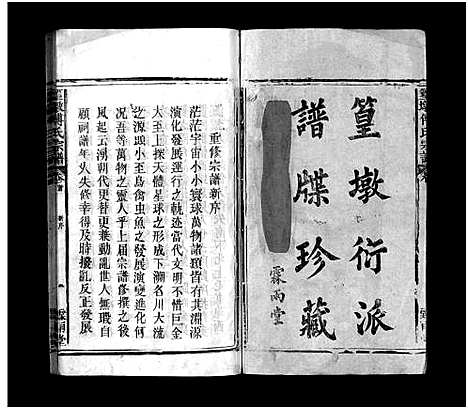 篁墩衍派
譜牒珍藏
霖雨堂
重修宗譜新序
茫茫宇宙小小寰球萬物諸項皆有其淵源
演化發展運行之軌迹當代文明不惜巨金
上探天體星球之形成下溯名川大流
之源頭小至鳥禽虫魚之發展演變進化何
况吾等萬物之靈人乎上届宗譜修撰之後
風起云湧朝代更替更兼動亂世人無暇自
顧祠譜年久失修幸得及時撥亂反正發展
新序